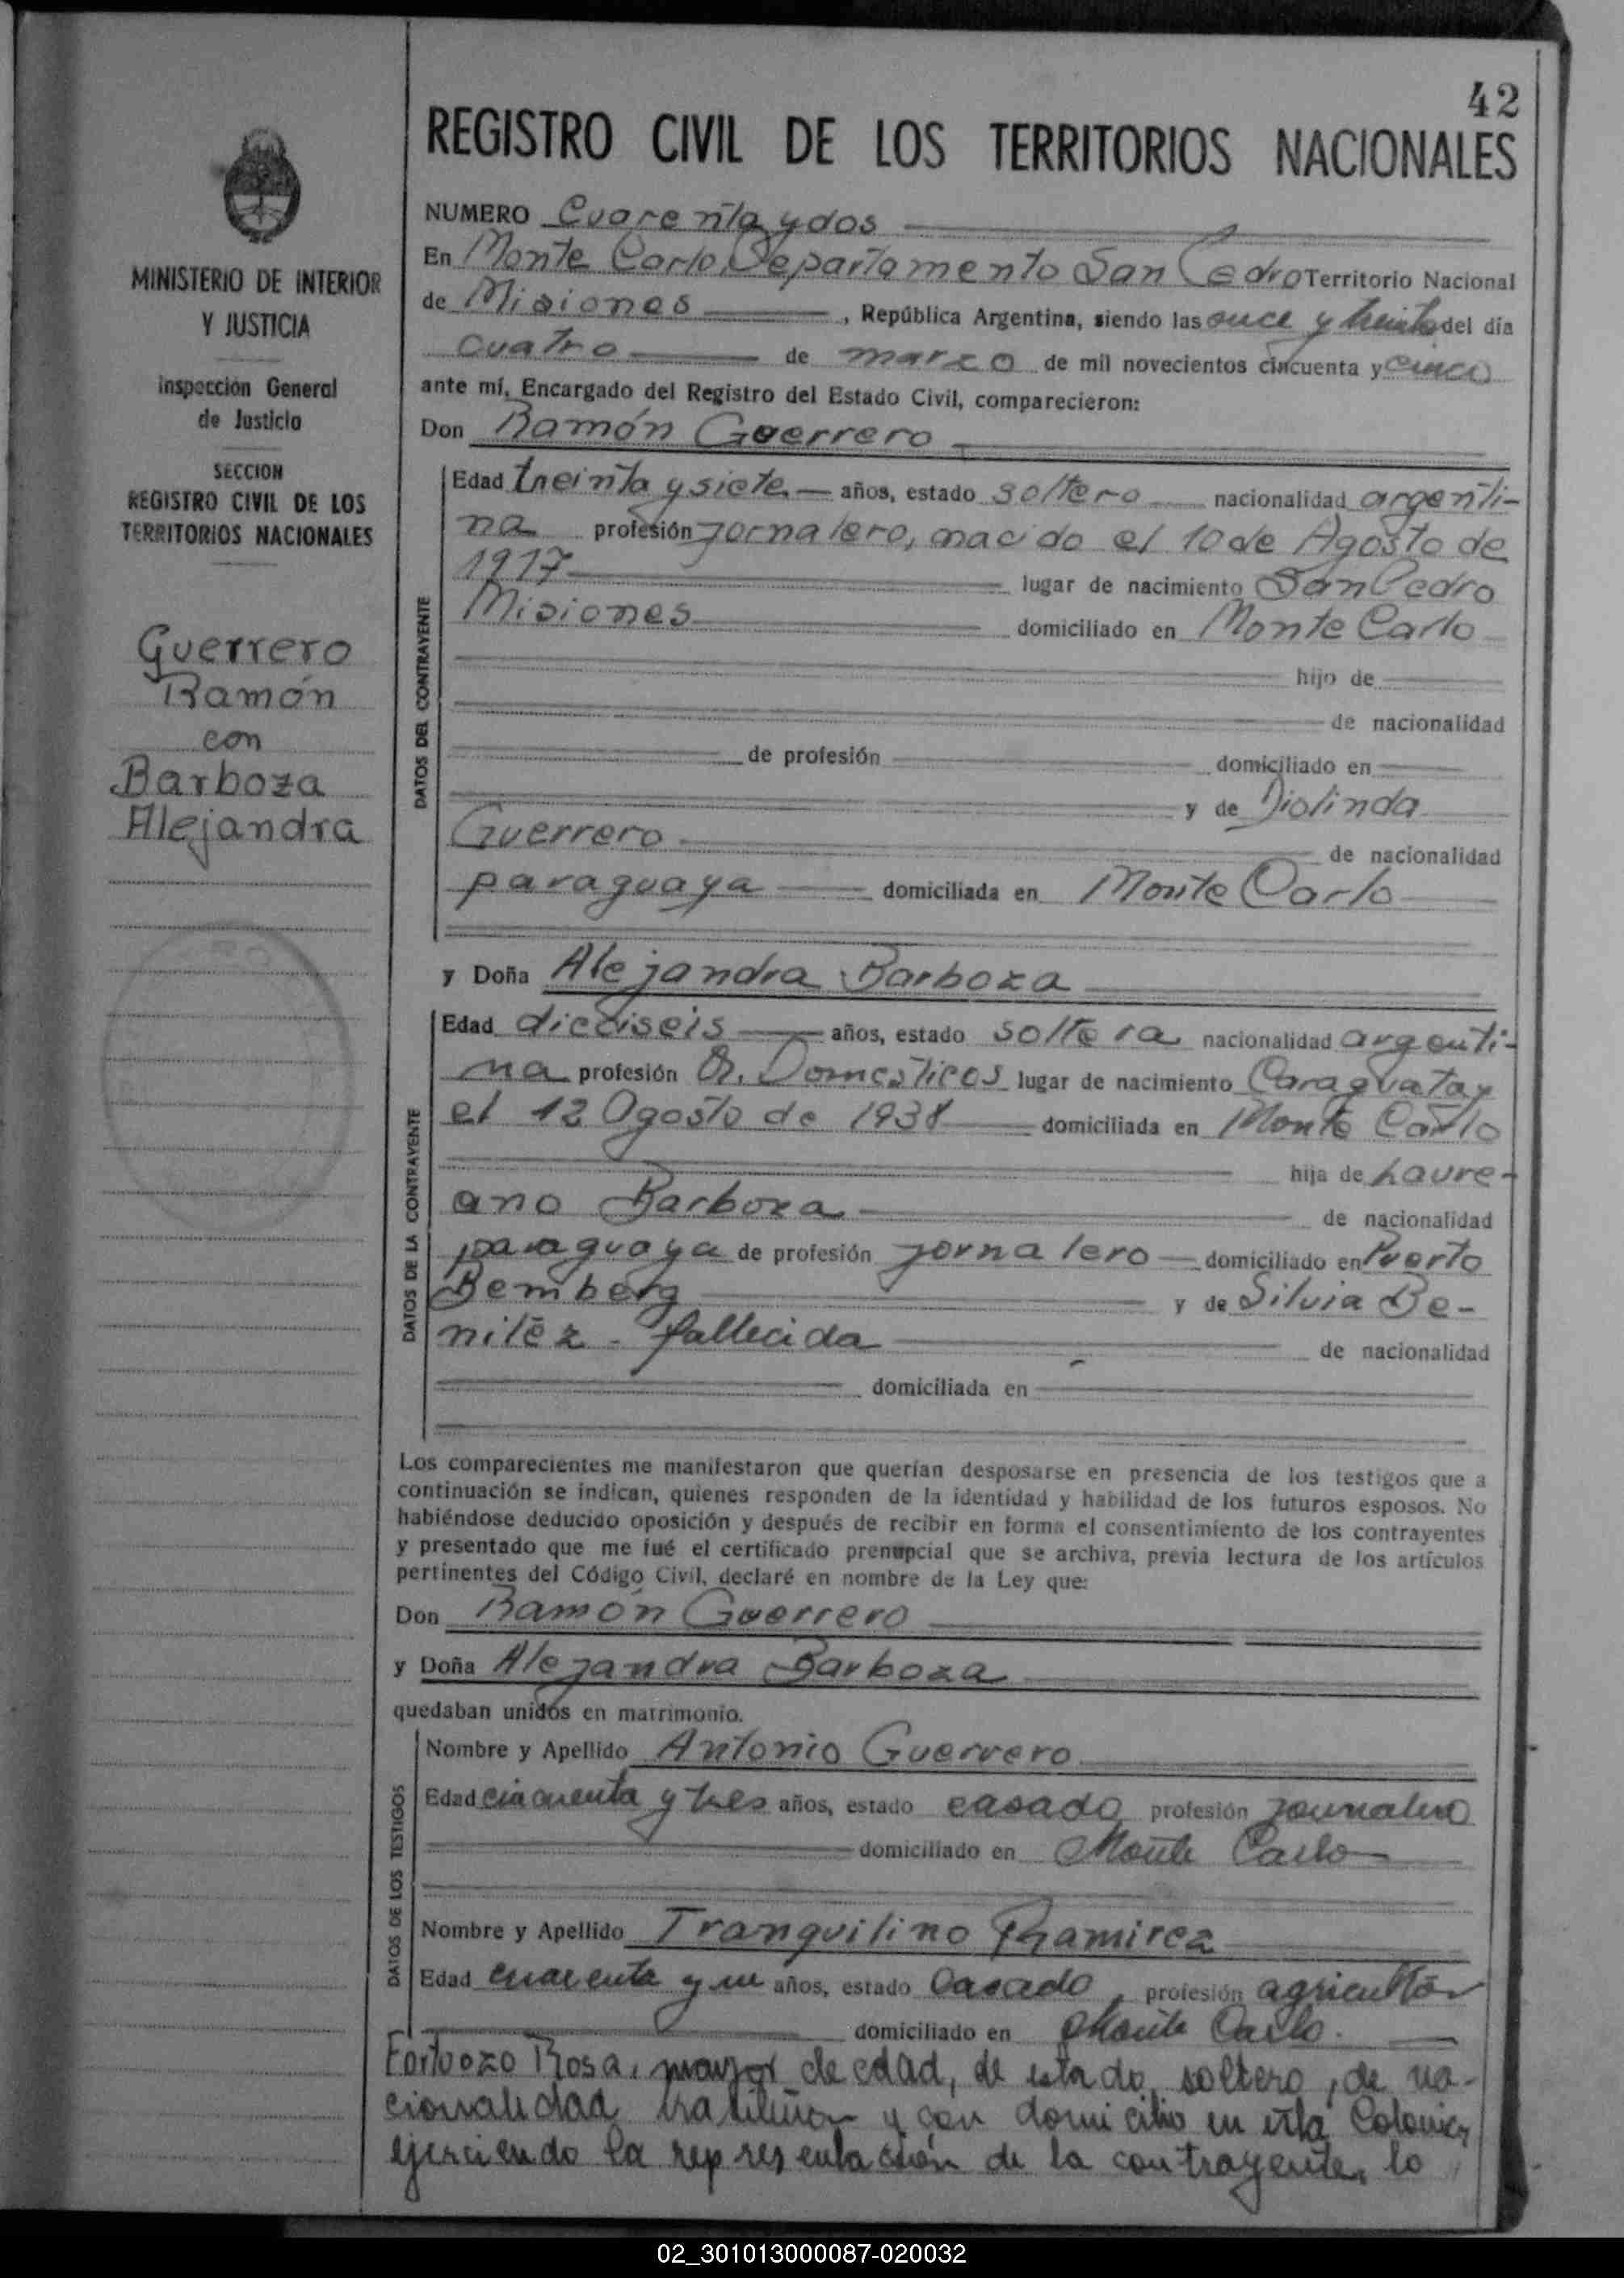 42
REGISTRO CIVIL DE LOS TERRITORIOS NACIONALES
MINISTERIO DE INTERIOR
Y JUSTICIA
Inspección General
de Justicia
SECCION
REGISTRO CIVIL DE LOS
TERRITORIOS NACIONALES
Guerrero
Ramón
con
Barboza
Alejandra
NUMERO Cuarenta y dos
En Monte Carlo, Departamento San Pedro Territorio Nacional
de Misiones, República Argentina, siendo las once y treinta del día
cuatro de marzo de mil novecientos cincuenta y cinco
ante mí, Encargado del Registro del Estado Civil, comparecieron:
Don Ramón Guerrero
DATOS DEL CONTRAYENTE
Edad treinta y siete años, estado soltero nacionalidad argenti-
na profesión jornalero, nacido el 10 de Agosto de
1917 lugar de nacimiento San Pedro
Misiones domiciliado en Monte Carlo
hijo de
de nacionalidad
de profesión domiciliado en
y de Diolinda
Guerrero de nacionalidad
paraguaya domiciliada en Monte Carlo
y Doña Alejandra Barboza
DATOS DE LA CONTRAYENTE
Edad dieciseis años, estado soltera nacionalidad argenti-
na profesión Q. Domésticos lugar de nacimiento Caraguatay
el 12 Agosto de 1938 domiciliada en Monte Carlo
hija de Laure-
ano Barboza de nacionalidad
paraguaya de profesión jornalero domiciliado en Puerto
Bemberg y de Silvia Be-
nitéz - fallecida de nacionalidad
domiciliada en
Los comparecientes me manifestaron que querían desposarse en presencia de los testigos que a
continuación se indican, quienes responden de la identidad y habilidad de los futuros esposos. No
habiéndose deducido oposición y después de recibir en forma el consentimiento de los contrayentes
y presentado que me fué el certificado prenupcial que se archiva, previa lectura de los artículos
pertinentes del Código Civil, declaré en nombre de la Ley que:
Don Ramón Guerrero
y Doña Alejandra Barboza
quedaban unidos en matrimonio.
DATOS DE LOS TESTIGOS
Nombre y Apellido Antonio Guerrero
Edad cincuenta y tres años, estado casado profesión jornalero
domiciliado en Monte Carlo
Nombre y Apellido Tranquilino Ramirez
Edad cuarenta y un años, estado Casado, profesión agricultor
domiciliado en Monte Carlo.
Fortuozo Rosa, mayor de edad, de estado soltero, de na-
cionalidad brasileña y con domicilio en esta Colonia,
ejerciendo la representación de la contrayente, lo
02_301013000087-020032